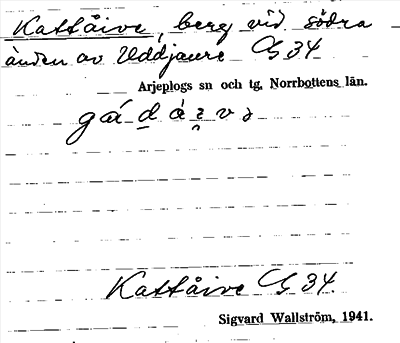 Kattåive, berg vid södra
änden av Uddjaure G 34
Arjeplogs sn och tg, Norrbottens län.
Kattåive G 34.
Sigvard Wallström, 1941.